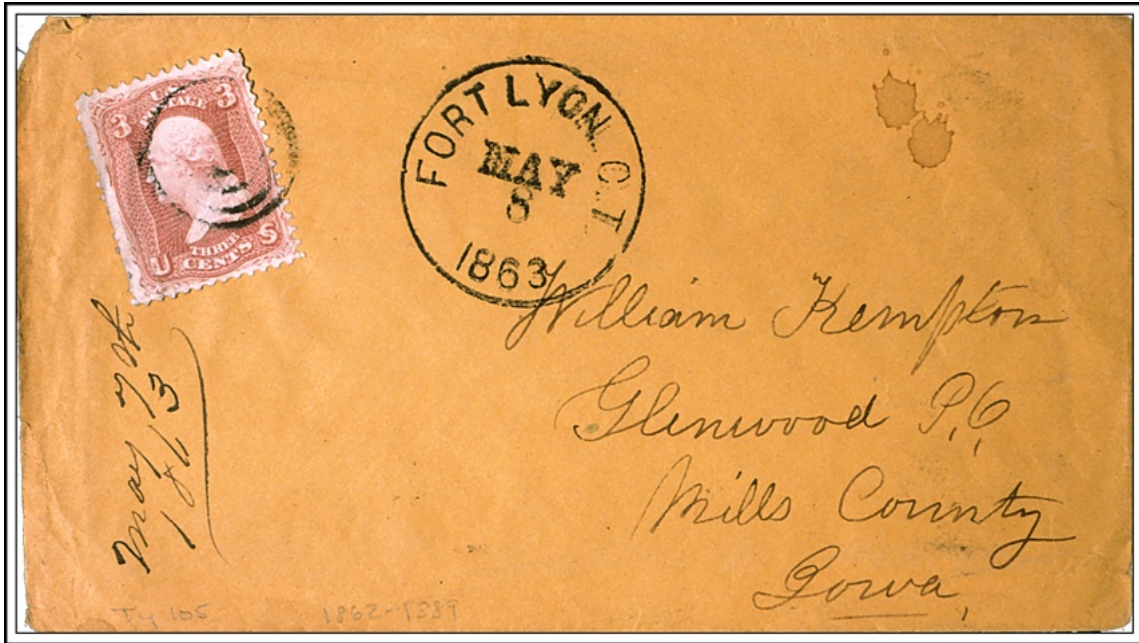 3 U.S. 3
POSTAGE
U THREE S
CENTS
FORT LYON. C.T.
MAY
8
1863
William Kempton
Glenwood P.O
Mills County
Iowa,
May 7th
1863
Ty 105 1862-1889